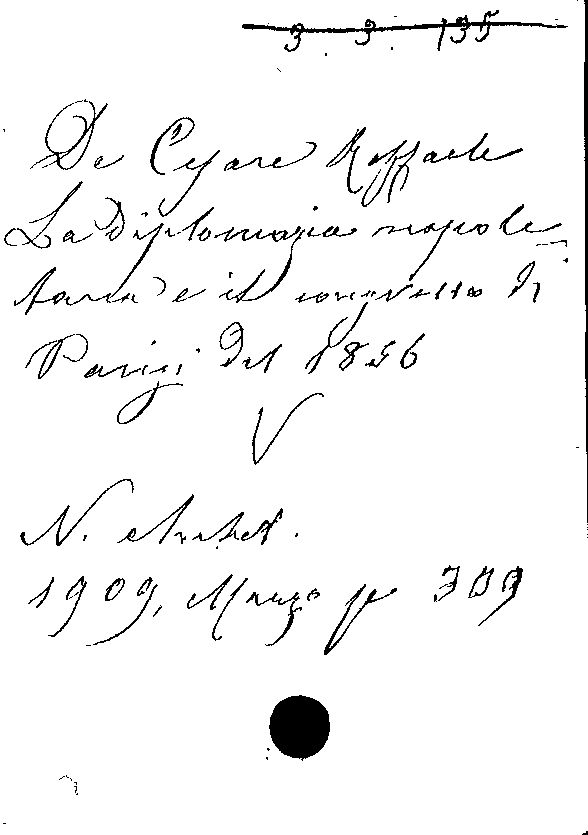 3. 3. 135
De Cesare Raffaele
La diplomazia napole=
tana e il congresso di
Parigi del 1856
V
N. Antol.
1909, Marzo p 309